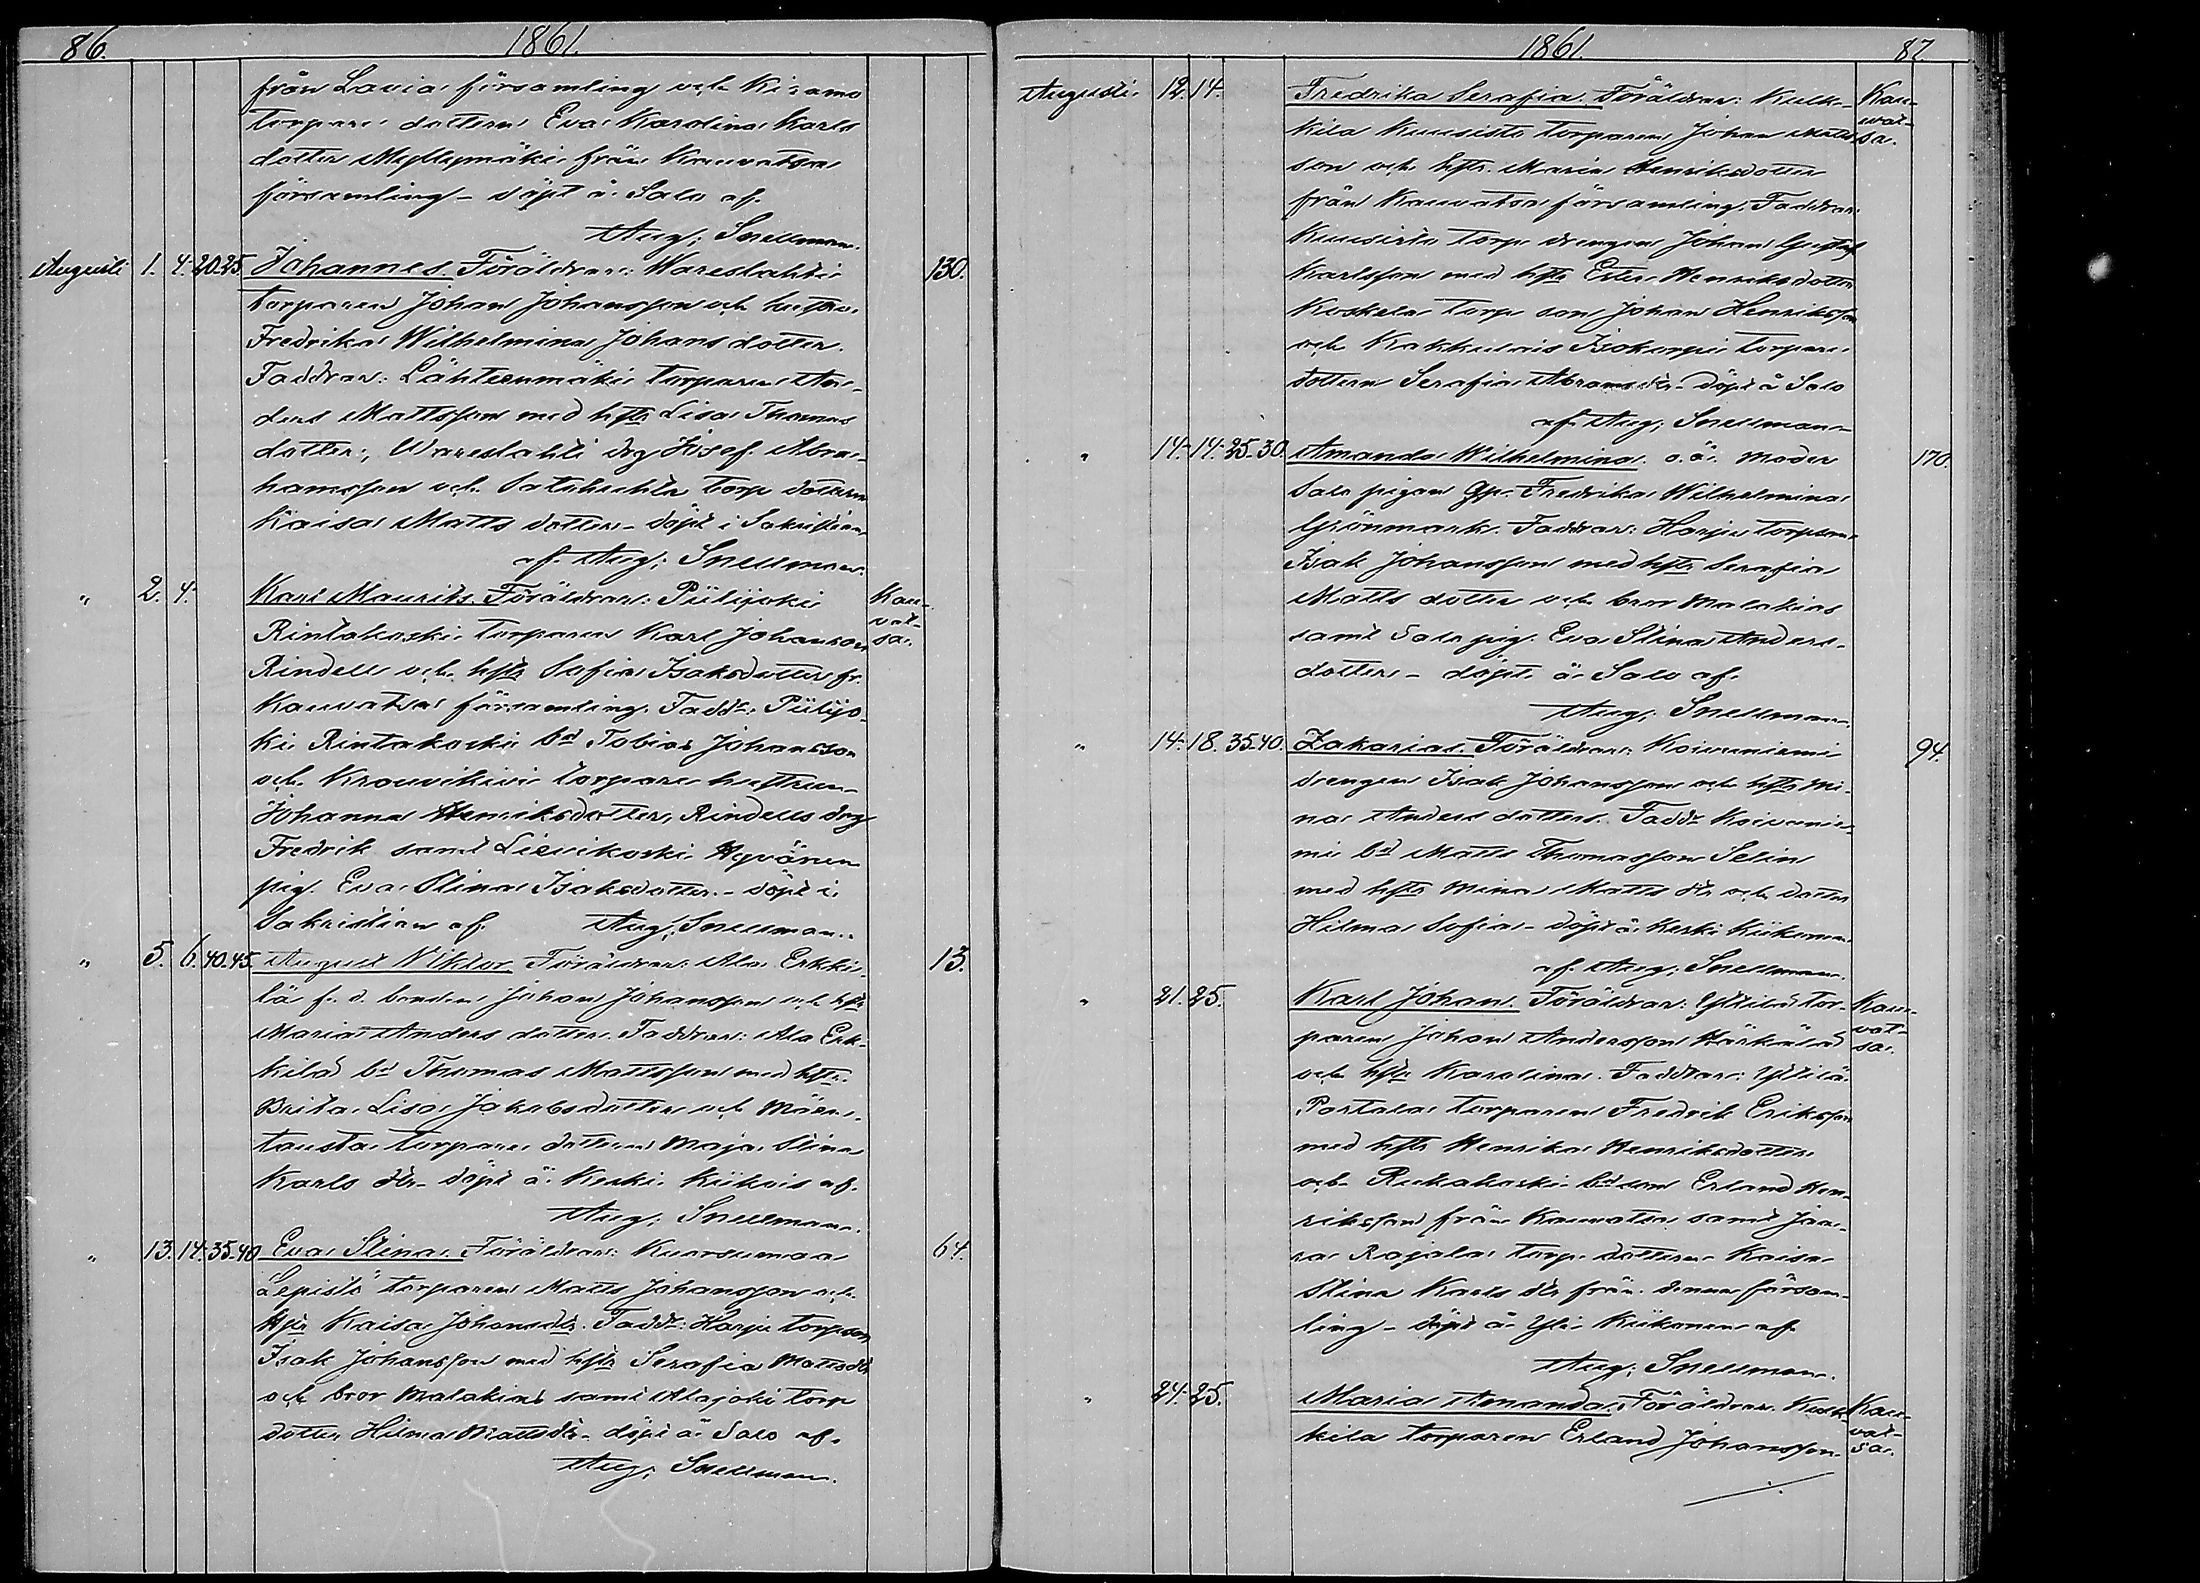 86. 1861.
från Lavia församling och Kiramo
torpare dottern Eva Karolina Karls
dotter Myllymäki från Kauvatsa
församling - döpt å Salo af
Aug; Snellman.
Augusti 1. 4. 20.25. Johannes. Föräldrar: Wareslahti 130.
torparen Johan Johansson och hustru
Fredrika Wilhelmina Johansdotter.
Faddrar: Lähteenmäki torparen An-
ders Mattsson med hstr Lisa Thomas
dotter, Wareslahti drg Josef Abra-
hamsson och torp dottern
Kaisa Matts dotter - döpt i Sakristian
af Aug; Snellman.
" 2. 4. Karl Maurits. Föräldrar: Piilijoki Kau-
Rintakoski torparen Karl Johansson vat-
Rindell och hstr Sofia Isaksdotter fr. sa.
Kauvatsa församling. Faddr: Piilijo-
ki Rintakoski bd Tobias Johansson
och torpare hustrun
Johanna Henriksdotter, Rindells drg
Fredrik samt Lievikoski Hyvönen
pig. Eva Stina Isaksdotter. - döpt i
Sakristian af Aug; Snellman.
" 5. 6. 40.45. August Viktor. Föräldrar: Ala Erkki- 13.
lä f. d. bonden Johan Johansson och hstr
Maria Anders dotter. Faddrar: Ala Erk-
kilä bd Thomas Mattsson med hstr
Brita Lisa Jakobsdotter och Mäen-
tausta torpare dottern Maja Stina
Karls dtr - döpt å Keski Kiikois af
Aug; Snellman.
" 13. 14. 35.40. Eva Stina. Föräldrar: Kuorsumaa 64.
Lepistö torparen Matts Johansson och
hstr Kaisa Johansdtr. Faddr: Harju torpson
Isak Johansson med hstr Serafia Mattsdtr
och bror Malakias samt Alajoki torp
dotter Hilma Mattsdtr - döpt å Salo af
Aug; Snellman.
1861. 87.
Augusti 12. 14. Fredrika Serafia. Föräldrar: Kulk- Kau-
kila Kuusisto torparen Johan Matts vat-
son och hstr. Maria Henriksdotter sa.
från Kauvatsa församling. Faddrar:
Kuusisto torp drengen Johan Gustaf
Karlsson med hstr Ester Henriksdotter
Koskela torp son Johan Henriksson
och Kakkulais Isokorpi torpare
dottern Serafia Abramsdtr - döpt å Salo
af Aug; Snellman
" 14. 14. 25-30. Amanda Wilhelmina. o. ä. moder 170.
Salo pigan Fredrika Wilhelmina
Grönmark. Faddrar: Harju torpson
Isak Johansson med hstr Serafia
Matts dotter och bror Malakias
samt Salo pig. Eva Stina Anders-
dotter - döpt å Salo af
Aug; Snellman.
" 14. 18. 35.40. Zakarias. Föräldrar: Koivuniemi 94.
drengen Isak Johansson och hstr Mi-
na Anders dotter. Faddr Koivunie-
mi bd Matts Thomasson Selin
med hstr Mina Matts dtr och dotter
Hilma Sofia - döpt å Keski Kiikonen
af Aug; Snellman.
" 21. 25. Karl Johan. Föräldrar: Yttilä tor- Kau-
paren Johan Andersson Härkälä vat-
och hstr Karolina. Faddrar: Yttilä sa.
Portala torparen Fredrik Eriksson
med hstr Henrika Henriksdotter
och Rukakoski bd son Erland Hen-
riksson från Kauvatsa samt Jaa-
ra Rajala torp. dottern Kaisa
Stina Karls dtr från denna försam-
ling - döpt å Yli Kiikonen af
Aug; Snellman.
" 24. 25. Maria Amanda. Föräldrar: Kulk- Kau-
kila torparen Erland Johansson vat-
sa.